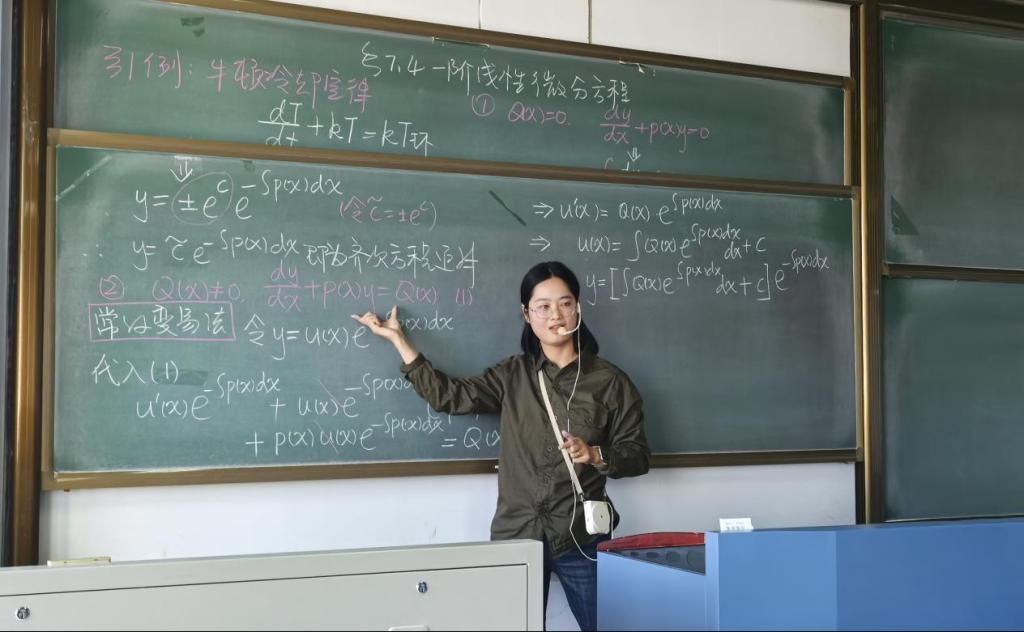 §7.4 一阶线性微分方程
引例: 牛顿冷却定律
dT/dt + kT = kT环
① Q(x)=0, dy/dx + p(x)y=0
⇓
y = ±e^c e^{-∫p(x)dx}
(令 c̃ = ±e^c)
∴ y = c̃ e^{-∫p(x)dx} 即为齐次方程通解
② Q(x)≠0, dy/dx + p(x)y = Q(x) (1)
常数变易法 令 y = u(x) e^{-∫p(x)dx}
代入(1)
u'(x)e^{-∫p(x)dx} + u(x)e^{-∫p(x)
+ p(x)u(x)e^{-∫p(x)dx} = Q(x
⇒ u'(x) = Q(x)·e^{∫p(x)dx}
⇒ u(x) = ∫Q(x)e^{∫p(x)dx}dx + c
y = [∫Q(x)e^{∫p(x)dx}dx + c] e^{-∫p(x)dx}